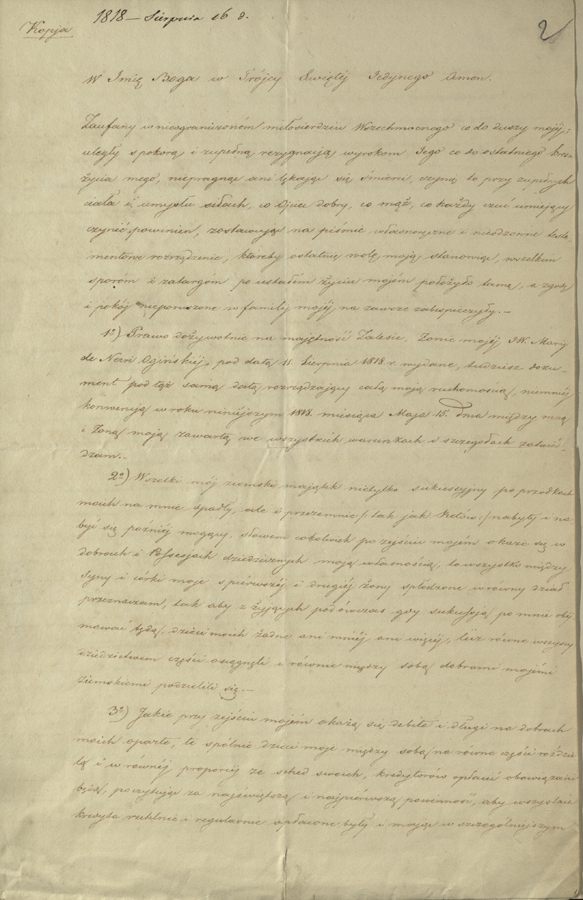 Kopja
1818 – Sierpnia 16 d.
2
W Imię Boga w Trójcy Świętéj Jedynego Amen.
Zaufany w nieograniczoném miłosierdziu Wszechmocnego co do duszy mojéj,
uległy z pokorą i zupełną rezygnacją wyrokom Jego co do ostatniego kresu
życia mego, niepragnąc ani lękając się śmierci, czynię to przy zupełnych
ciała i umysłu siłach, co Ojciec dobry, co mąż, co każdy czuć umiejący
czynić powinien, zostawując na piśmie własnoręczne i niezłomne testa-
mentowe rozrządzenie, któreby ostatnią wolę moją stanowiąc, wszelkim
sporóm i zatargóm po ustaniu życia mojém położyło tamę, a zgodę
i pokój nieporuszone w familij mojéj na zawsze zabezpieczyły. –
1º) Prawo dożywotnie na majętność Zalesie, Żonie mojéj JW. Marij
de Neri Ogińskiéj, pod datą 11 Sierpnia 1818 r. wydane, tudzież doku-
ment pod tąż samą datą rozrządzający całą moją ruchomością, niemniéj
konwencją w roku niniejszym 1818. miesiąca Maja 15. Dnia między mną
i Żoną moją zawartą we wszystkich warunkach i szczegółach zatwier-
dzam. –
2º) Wszelki mój ziemski majątek nietylko sukcesyjny po przodkach
moich na mnie spadły, ale i przezemnie /: tak jak Retów :/ nabyty i na-
być się późniéj mogący, słowem cokolwiek po zejściu mojém okaże się w
dobrach i Possesjach dziedzicznych moją własnością, to wszystko między
Syny i córki moje z pierwszéj i drugiéj żony spłodzone w równy dział
przeznaczam, tak aby z żyjących podówczas gdy sukcessją po mnie obej-
mować będą, dzieci moich żadne ani mniéj ani więcéj, lecz równe wszyscy
dziedzictwem części osięgnęli i równie między sobą dobrami mojemi
Ziemskiemi podzielili się. –
3º) Jakie przy zejściu mojém okażą się debita i długi na dobrach
moich oparte, te spólnie dzieci moje między sobą na równe części rozdzie-
lą i w równéj proporcij ze sched swoich, kredytorów opłacić obowiązani
będą, poczytując za najświętszą i najpierwszą powinność, aby wszystkie
kredyta rzetelnie i regularnie opłacone były i mając w szczególniejszym